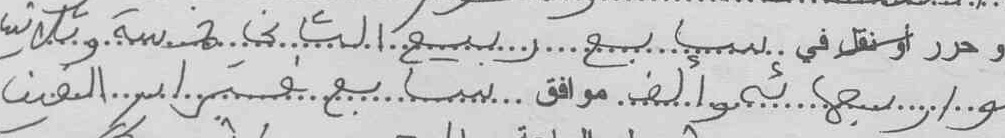 و حرر أو نقل في سابع ربيع الثاني خمسة وثلاثين
و اربعمائه وألف موافق سابع فبراير الفين